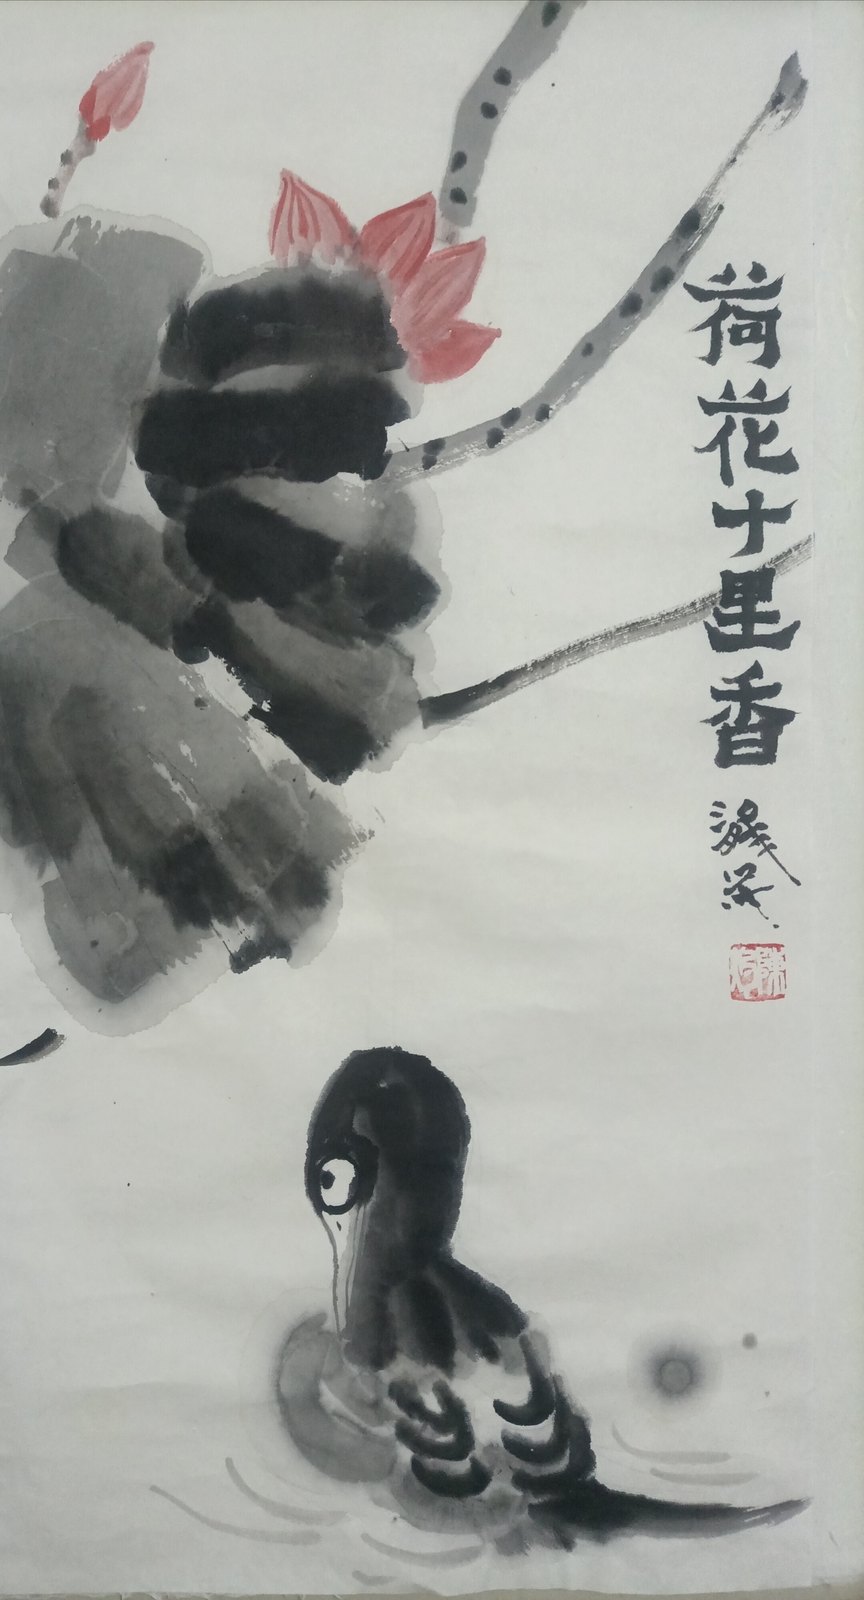 荷花十里香